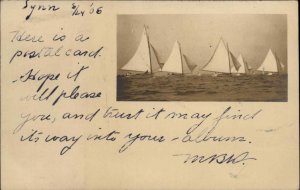 Lynn 8/24/06
Here is a
postal card.
Hope it
will please
you, and trust it may find
its way into your album.